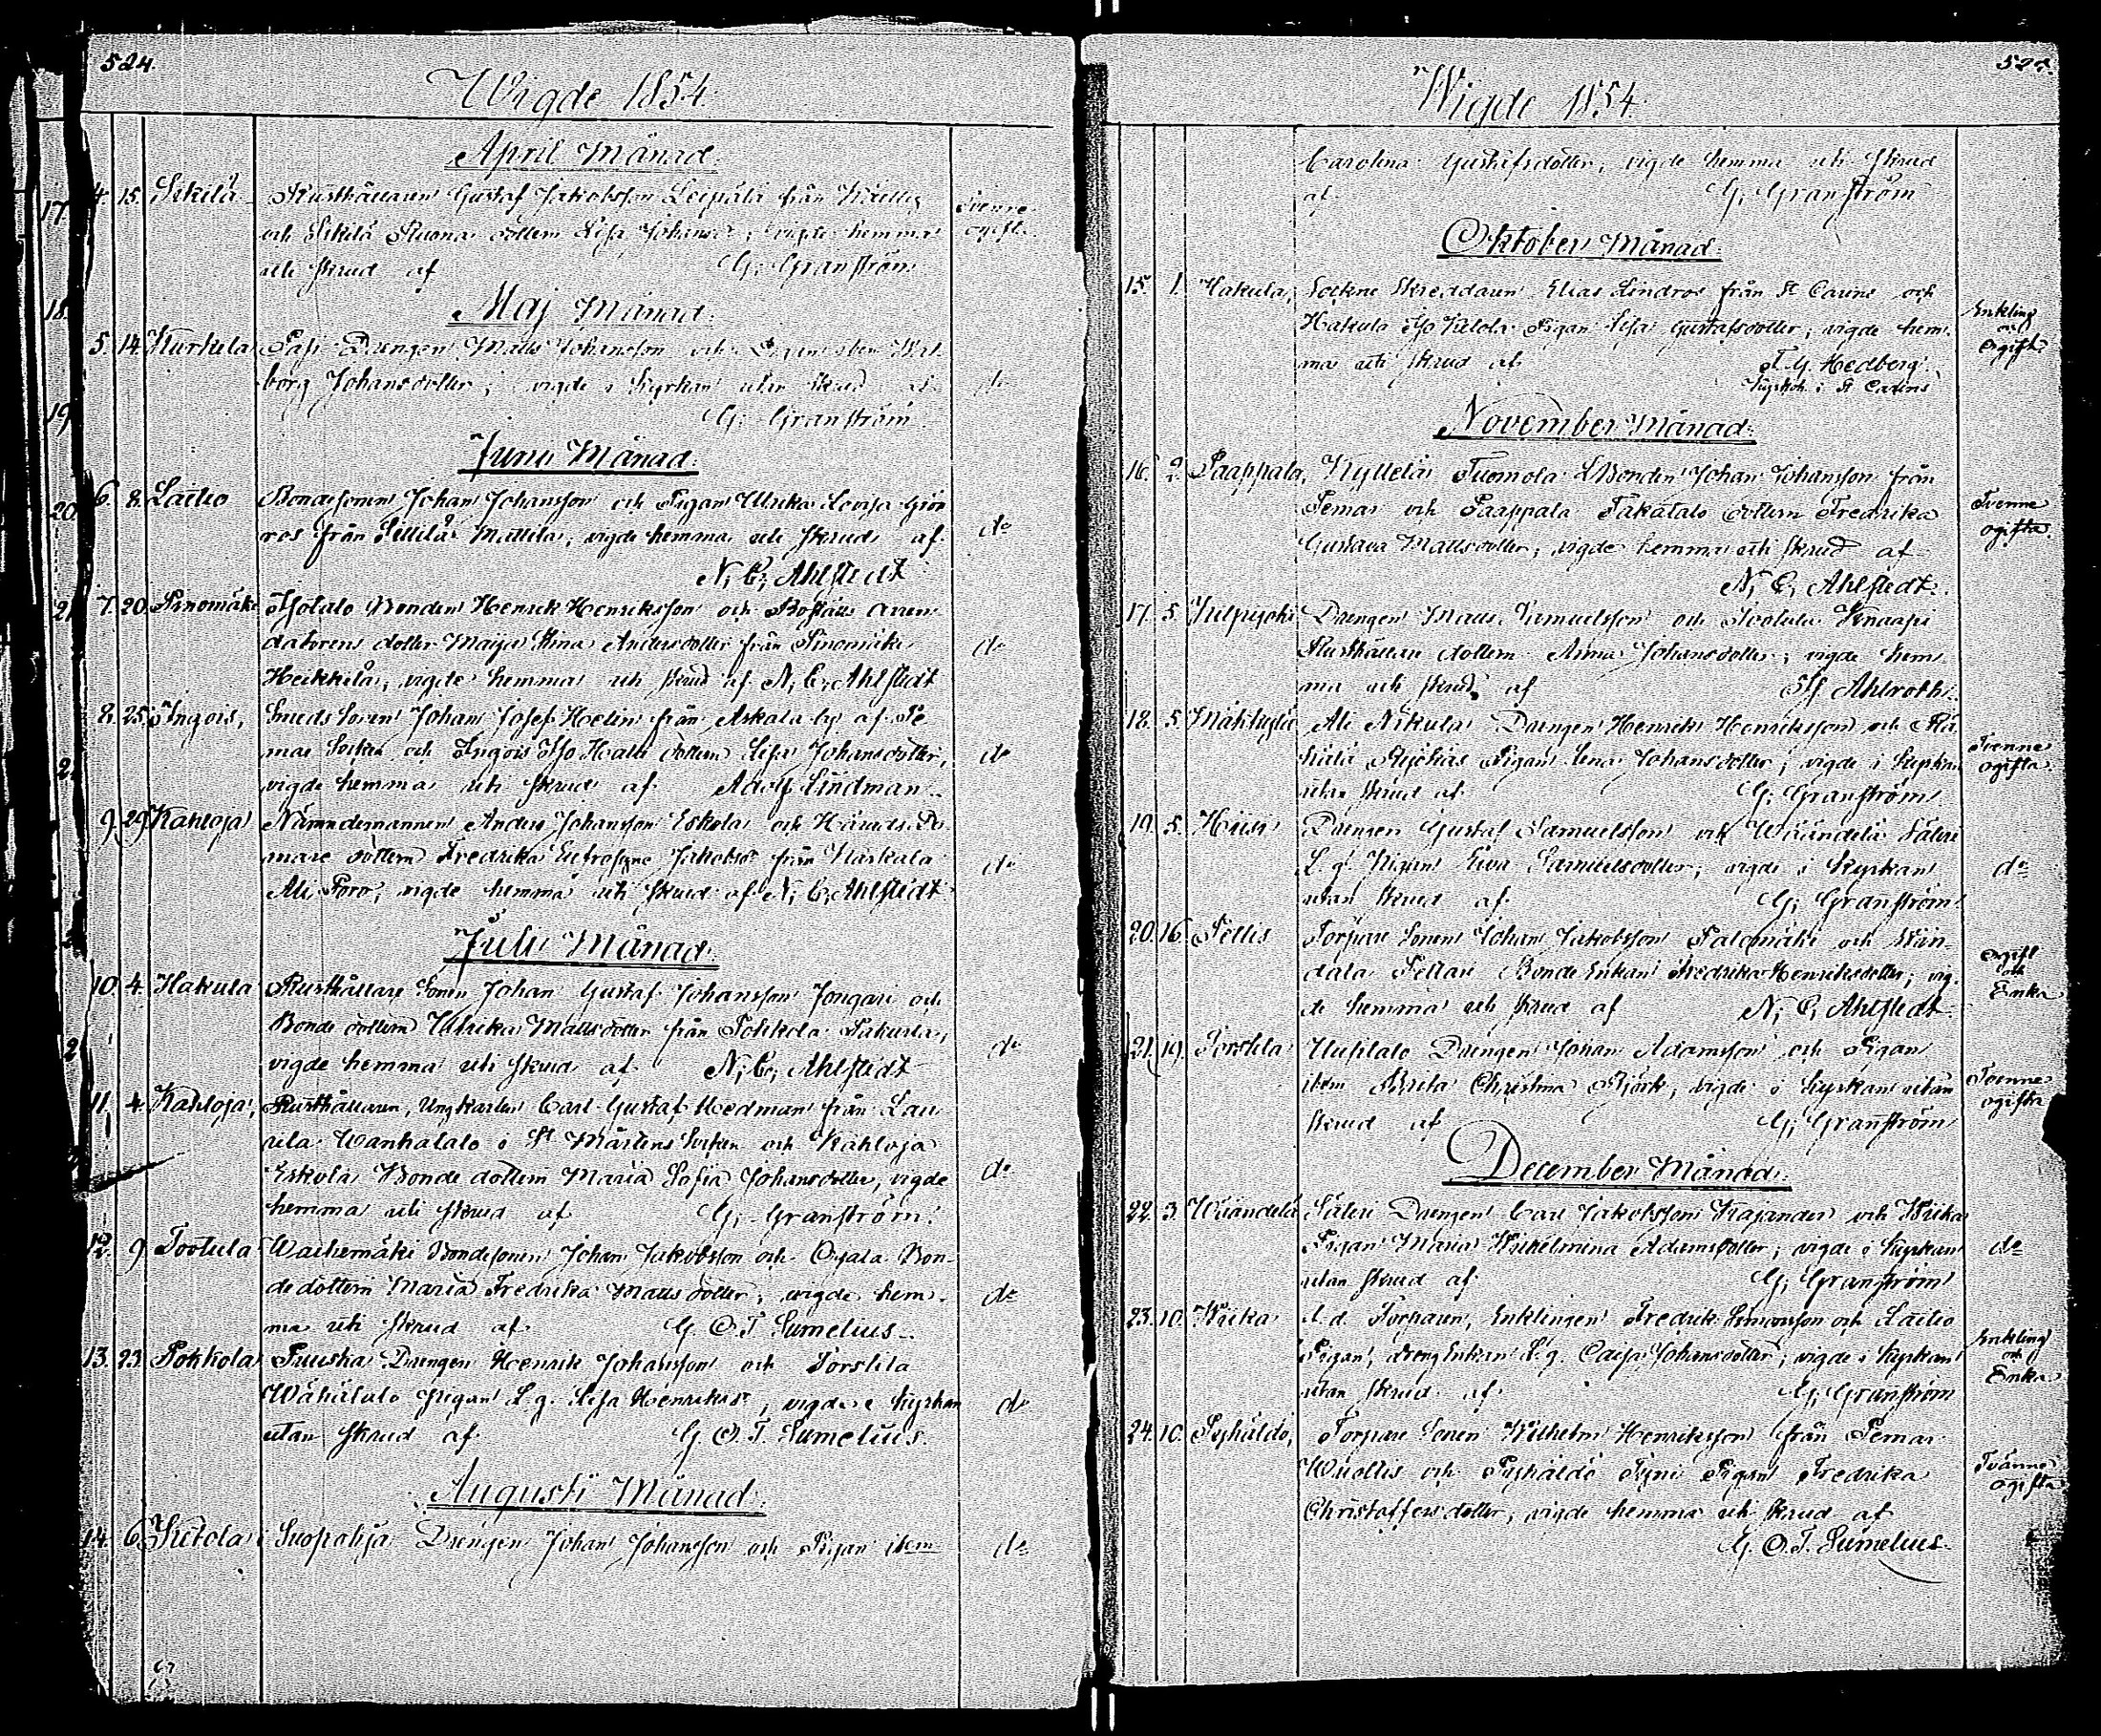 524.
Wigde 1854.
April Månad.
4. 15. Sikilä Rusthållaren Gustaf Jakobsson Leipälä från
och Sikilä dottern Lisa Johansd., vigde hemma
Tvenne ogifta
uti skrud af G. Granström
Maj Månad.
5. 14. Kurkela Pasi Drengen Matts Johansson och Pigan ibm Wal-
borg Johansdotter, vigde i Kyrkan utan skrud af do
G. Granström
Junii Månad.
6. 8. Laitio Bondesonen Johan Johansson och Pigan Ulrika Lovisa Grön
ros från Sillilä Mattila, vigde hemma uti skrud af do
N. C. Ahlstedt
7. 20. Pinomäki Isotalo Bonden Henrik Henriksson och Boställs Arren-
datorens dotter Maija Stina Andersdotter från Pinomäki do
Heikkilä, vigde hemma uti skrud af N. C. Ahlstedt
8. 25. Ingois, Smeds Sonen Johan Josef Helin från Askala by af Pe
mar Socken och Ingois Iso Heikki dottern Lisa Johansdotter, do
vigde hemma uti skrud af Adolf Lindman
9. 29. Kahloja Nämndemannen Anders Johansson Eskola och Härads Do
mare dottern Fredrika Eufrosyne Jakobsdr från Karkala do
Ali Poro, vigde hemma uti skrud af N. C. Ahlstedt
Julii Månad.
10. 4. Hakula Rusthållare Sonen Johan Gustaf Johansson Jongari och
Bonde dottern Ulrika Mattsdotter från Pokkola Pakurla, do
vigde hemma uti skrud af N. C. Ahlstedt
11. 4. Kahloja, Rusthållaren, Ungkarlen Carl Gustaf Hedman från Lau
rila Wanhatalo i St Mårtens Socken och Kahloja
Eskola Bonde dottern Maria Sofia Johansdotter, vigde do
hemma uti skrud af G. Granström.
12. 9. Tootula Waihemäki Bondesonen Johan Jakobsson och Ojala Bon-
dedottern Maria Fredrika Matts dotter, vigde hem- do
ma uti skrud af G. O. T. Sumelius
13. 23. Pokkola Puuska Drengen Henrik Johansson och Torstila
Wähätalo Pigan L. g. Lisa Henriksdr, vigde i Kyrkan do
utan skrud af G. O. T. Sumelius.
Augusti Månad.
14. 6. Jutola Suopohja Drengen Johan Johansson och Pigan ibm do
Wigde 1854.
Carolina Gustafsdotter, vigde hemma uti skrud
af G. Granström
Oktober Månad.
15. 1. Hakula, Sockne Skreddaren Elias Lindros från St Carins och
Hakula Iso Pigan Lisa Gustafsdotter, vigde hem-
Enkling och Ogift
ma uti skrud af F. G. Hedberg.
Kyrkoh. i St Carins
November Månad.
16. 2. Paappala, Kylletä Tuomola Bonden Johan Johansson från
Pemar och Paappala Takatalo dottern Fredrika
Tvenne ogifta.
Gustava Mattsdotter, vigde hemma uti skrud af
N. C. Ahlstedt.
17. 5. Julpyoki Drengen Matts Samuelsson och Tootula Knaapi
Rusthållare dottern Anna Johansdotter, vigde hem
ma uti skrud af If Ahlroth.
18. 5. Ali Nikula Drengen Henrik Henriksson och
Pigan Lena Johansdotter, vigde i Kyrkan
Tvenne ogifta.
utan skrud af G. Granström
19. 5. Hiisi Drengen Gustaf Samuelsson och Wäändelä Säteri
L. g. Pigan Eva Samuelsdotter, vigde i Kyrkan do
utan skrud af G. Granström
20. 16. Pellis Torpare Sonen Johan Jakobsson Palomäki och Wän-
dala Pellari Bonde Enkan Fredrika Henriksdotter, vig-
ogift och Enka
de hemma uti skrud af N. C. Ahlstedt
21. 19. Torstila Uusitalo Drengen Johan Adamsson och Pigan
ibm Brita Christina Björk, vigde i Kyrkan utan
Tvenne ogifta
skrud af G. Granström
December Månad.
22. 3. Wäändelä Säteri Drengen Carl Jakobsson Kajander och Wiika
Pigan Maria Wilhelmina Adamsdotter, vigde i Kyrkan do
utan skrud af G. Granström
23. 10. Wiika L. d. Torparen, Enklingen Fredrik Simonsson och Laitio
Pigan, dreng Enkan L. g. Caisa Johansdotter, vigde i Kyrkan
Enkling och Enka
utan skrud af G. Granström
24. 10. Pyhäldö, Torpare Sonen Wilhelm Henriksson från Pemar
Wuollis och Pyhäldö Pigan Fredrika
Tvänne ogifta
Christoffersdotter, vigde hemma uti skrud af
G. O. T. Sumelius